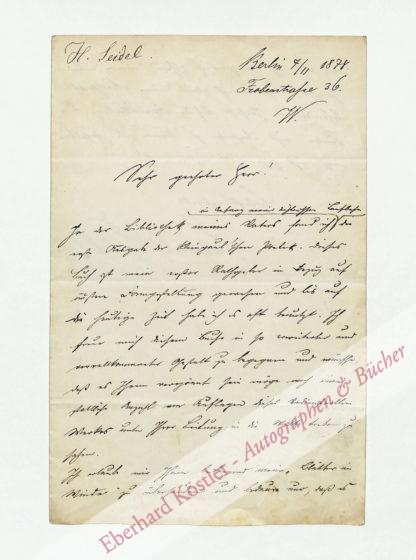 H. Seidel.
Berlin 4/11 1878.
Frobenstrasse 36.
W.
Sehr geehrter Herr!
im Anfang meiner dichterischen Laufbahn
In der Bibliothek meines Vaters fand ich die
erste Ausgabe der Kleinpaul'schen Poetik. Dieses
Buch ist mein erster Rathgeber in Bezug auf
äußere Formgestaltung gewesen und bis auf
die heutige Zeit habe ich es oft benutzt. Ich
freue mich diesem Buche in so erweiterter und
vervollkommneter Gestalt zu begegnen und wünsche
daß es Ihnen vergönnt sein möge noch eine
stattliche Anzahl von Auflagen dieses
Werkes unter Ihrer Leitung in die zu
sehen.
Ich erlaube mir Ihnen meine, Blätter im
Winde zu und bedaure nur, daß es
Eberhard Köstler - Autographen & Bücher